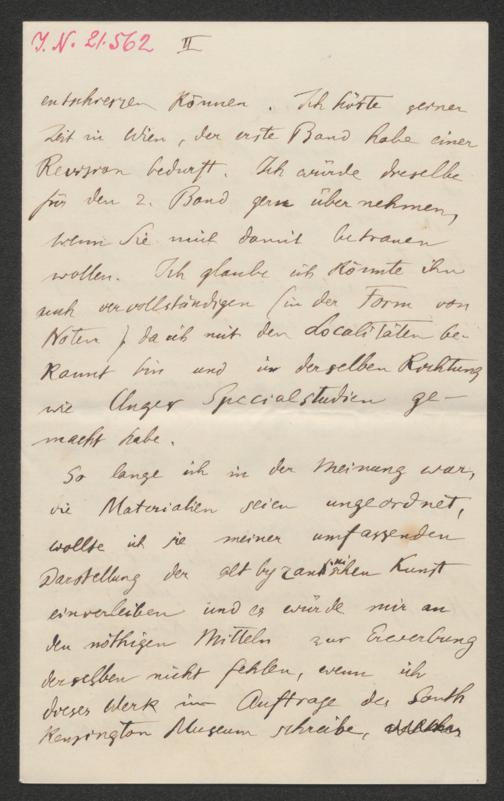 J. N. 21.562 II
entschliessen können. Ich hörte seiner
Zeit in Wien, der erste Band habe einer
Revision bedurft. Ich würde dieselbe
für den 2. Band gern übernehmen,
wenn Sie mich damit betrauen
wollen. Ich glaube ich könnte ihn
auch vervollständigen (in der Form von
Noten) da ich mit den Localitäten be-
kannt bin und in derselben Richtung
wie Unger Specialstudien ge-
macht habe.
So lange ich in der Meinung war,
die Materialien seien ungeordnet,
wollte ich sie meiner umfassenden
Darstellung der altbyzantinischen Kunst
einverleiben und es würde mir an
den nöthigen Mitteln zur Erwerbung
derselben nicht fehlen, wenn ich
dieses Werk im Auftrage des South
Kensington Museum schreibe,